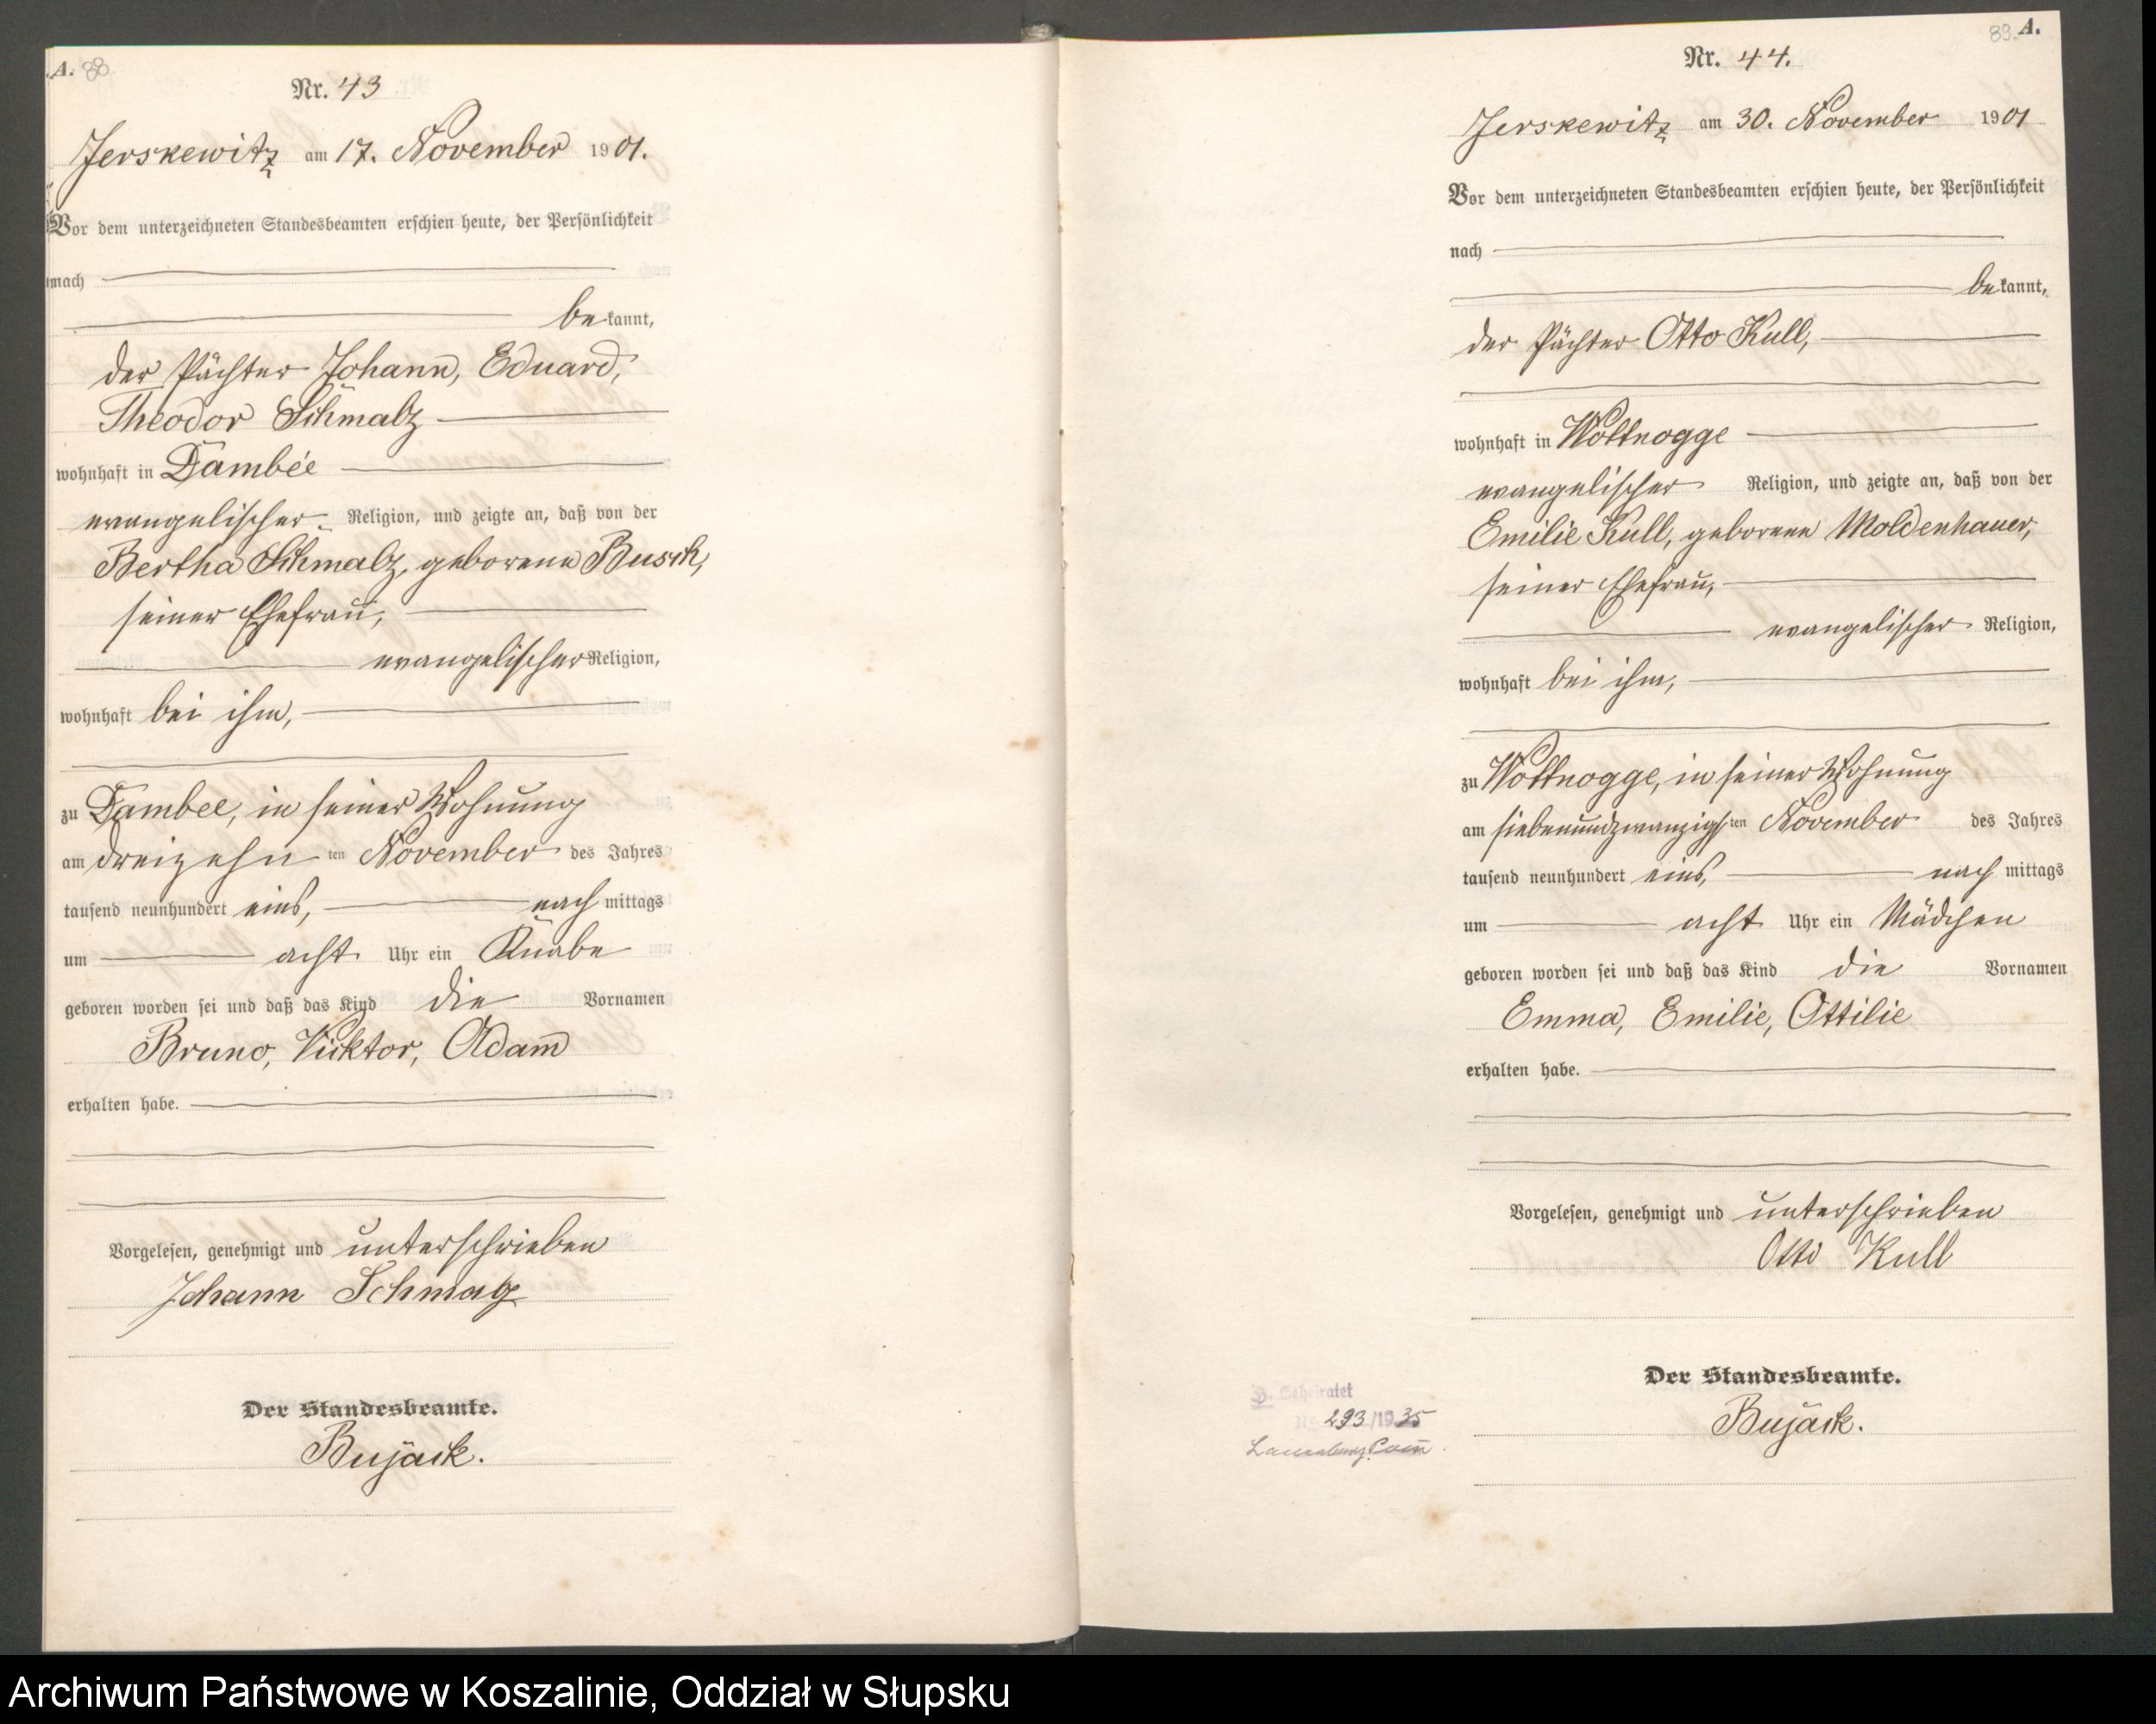 A. 88
Nr. 43
Jerskewitz am 17. November 1901.
Vor dem unterzeichneten Standesbeamten erschien heute, der Persönlichkeit
nach
bekannt,
der Pächter Johann, Eduard,
Theodor Schmalz
wohnhaft in Dambee
evangelischer Religion, und zeigte an, daß von der
Bertha Schmalz, geborene Busch,
seiner Ehefrau,
evangelischer Religion,
wohnhaft bei ihm,
zu Dambee, in seiner Wohnung
am dreizehnten November des Jahres
tausend neunhundert eins, nachmittags
um acht Uhr ein Knabe
geboren worden sei und daß das Kind die Vornamen
Bruno, Vicktor, Adam
erhalten habe.
Vorgelesen, genehmigt und unterschrieben
Johann Schmalz
Der Standesbeamte.
Bujack.
89. A.
Nr. 44.
Jerskewitz am 30. November 1901
Vor dem unterzeichneten Standesbeamten erschien heute, der Persönlichkeit
nach
bekannt,
der Pächter Otto Kull,
wohnhaft in Wottnogge
evangelischer Religion, und zeigte an, daß von der
Emilie Kull, geborene Moldenhauer,
seiner Ehefrau,
evangelischer Religion,
wohnhaft bei ihm,
zu Wottnogge, in seiner Wohnung
am siebenundzwanzigsten November des Jahres
tausend neunhundert eins, nachmittags
um acht Uhr ein Mädchen
geboren worden sei und daß das Kind die Vornamen
Emma, Emilie, Ottilie
erhalten habe.
Vorgelesen, genehmigt und unterschrieben
Otto Kull
Der Standesbeamte.
Bujack.
Geheiratet
Nr. 293/1935
Lauenburg Pom.
Archiwum Państwowe w Koszalinie, Oddział w Słupsku